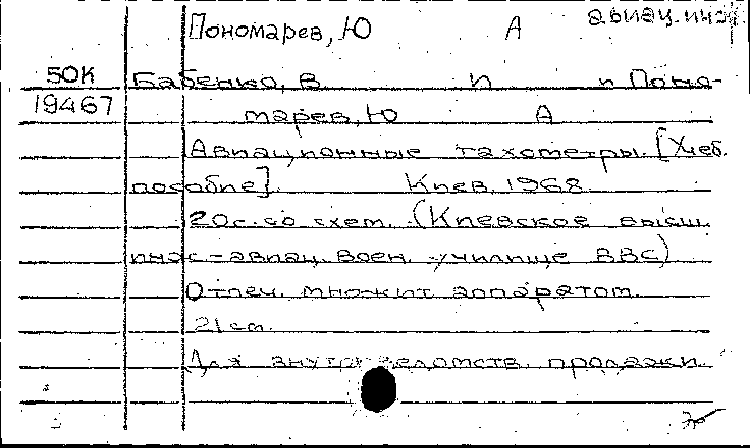 авиац. инж
Пономарев, Ю А
50К Бабенко, В И и Поно-
19467 марев, Ю А
Авиационные тахометры. [Учеб.
пособие]. Киев, 1968.
20с. со схем. (Киевское высш.
инж-авиац. воен. училище ВВС)
Отпеч. множит. аппаратом.
21см.
Для внутриведомств. продажи.